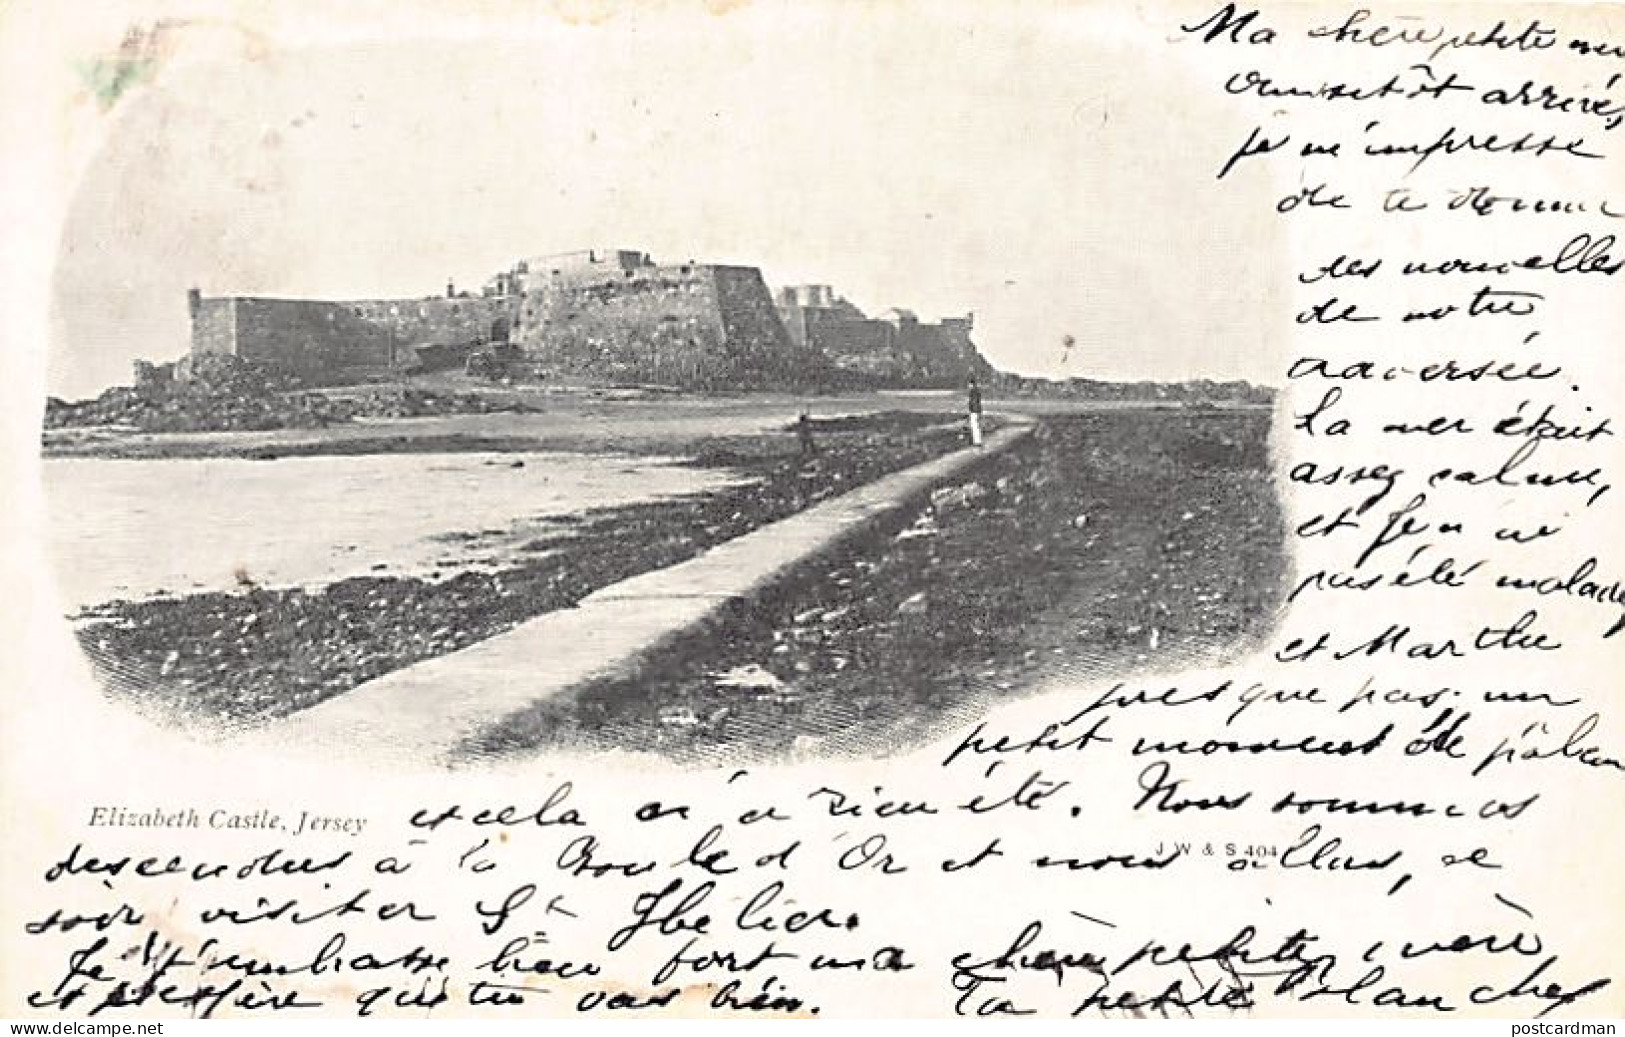 Ma chère petite mère
aussitôt arrivés,
je m'empresse
de te donner
des nouvelles
de notre
traversée.
La mer était
assez calme,
et je n'ai
pas été malade,
et Marthe
presque pas; un
petit moment de
Elizabeth Castle, Jersey
et cela n'a rien été. Nous sommes
J W & S 404
descendus à la Boule d'Or et nous allons, ce
soir visiter St Hélier.
Je t'embrasse bien fort ma chère petite mère
et espère que tu vas bien. Ta petite Blanche
postcardman